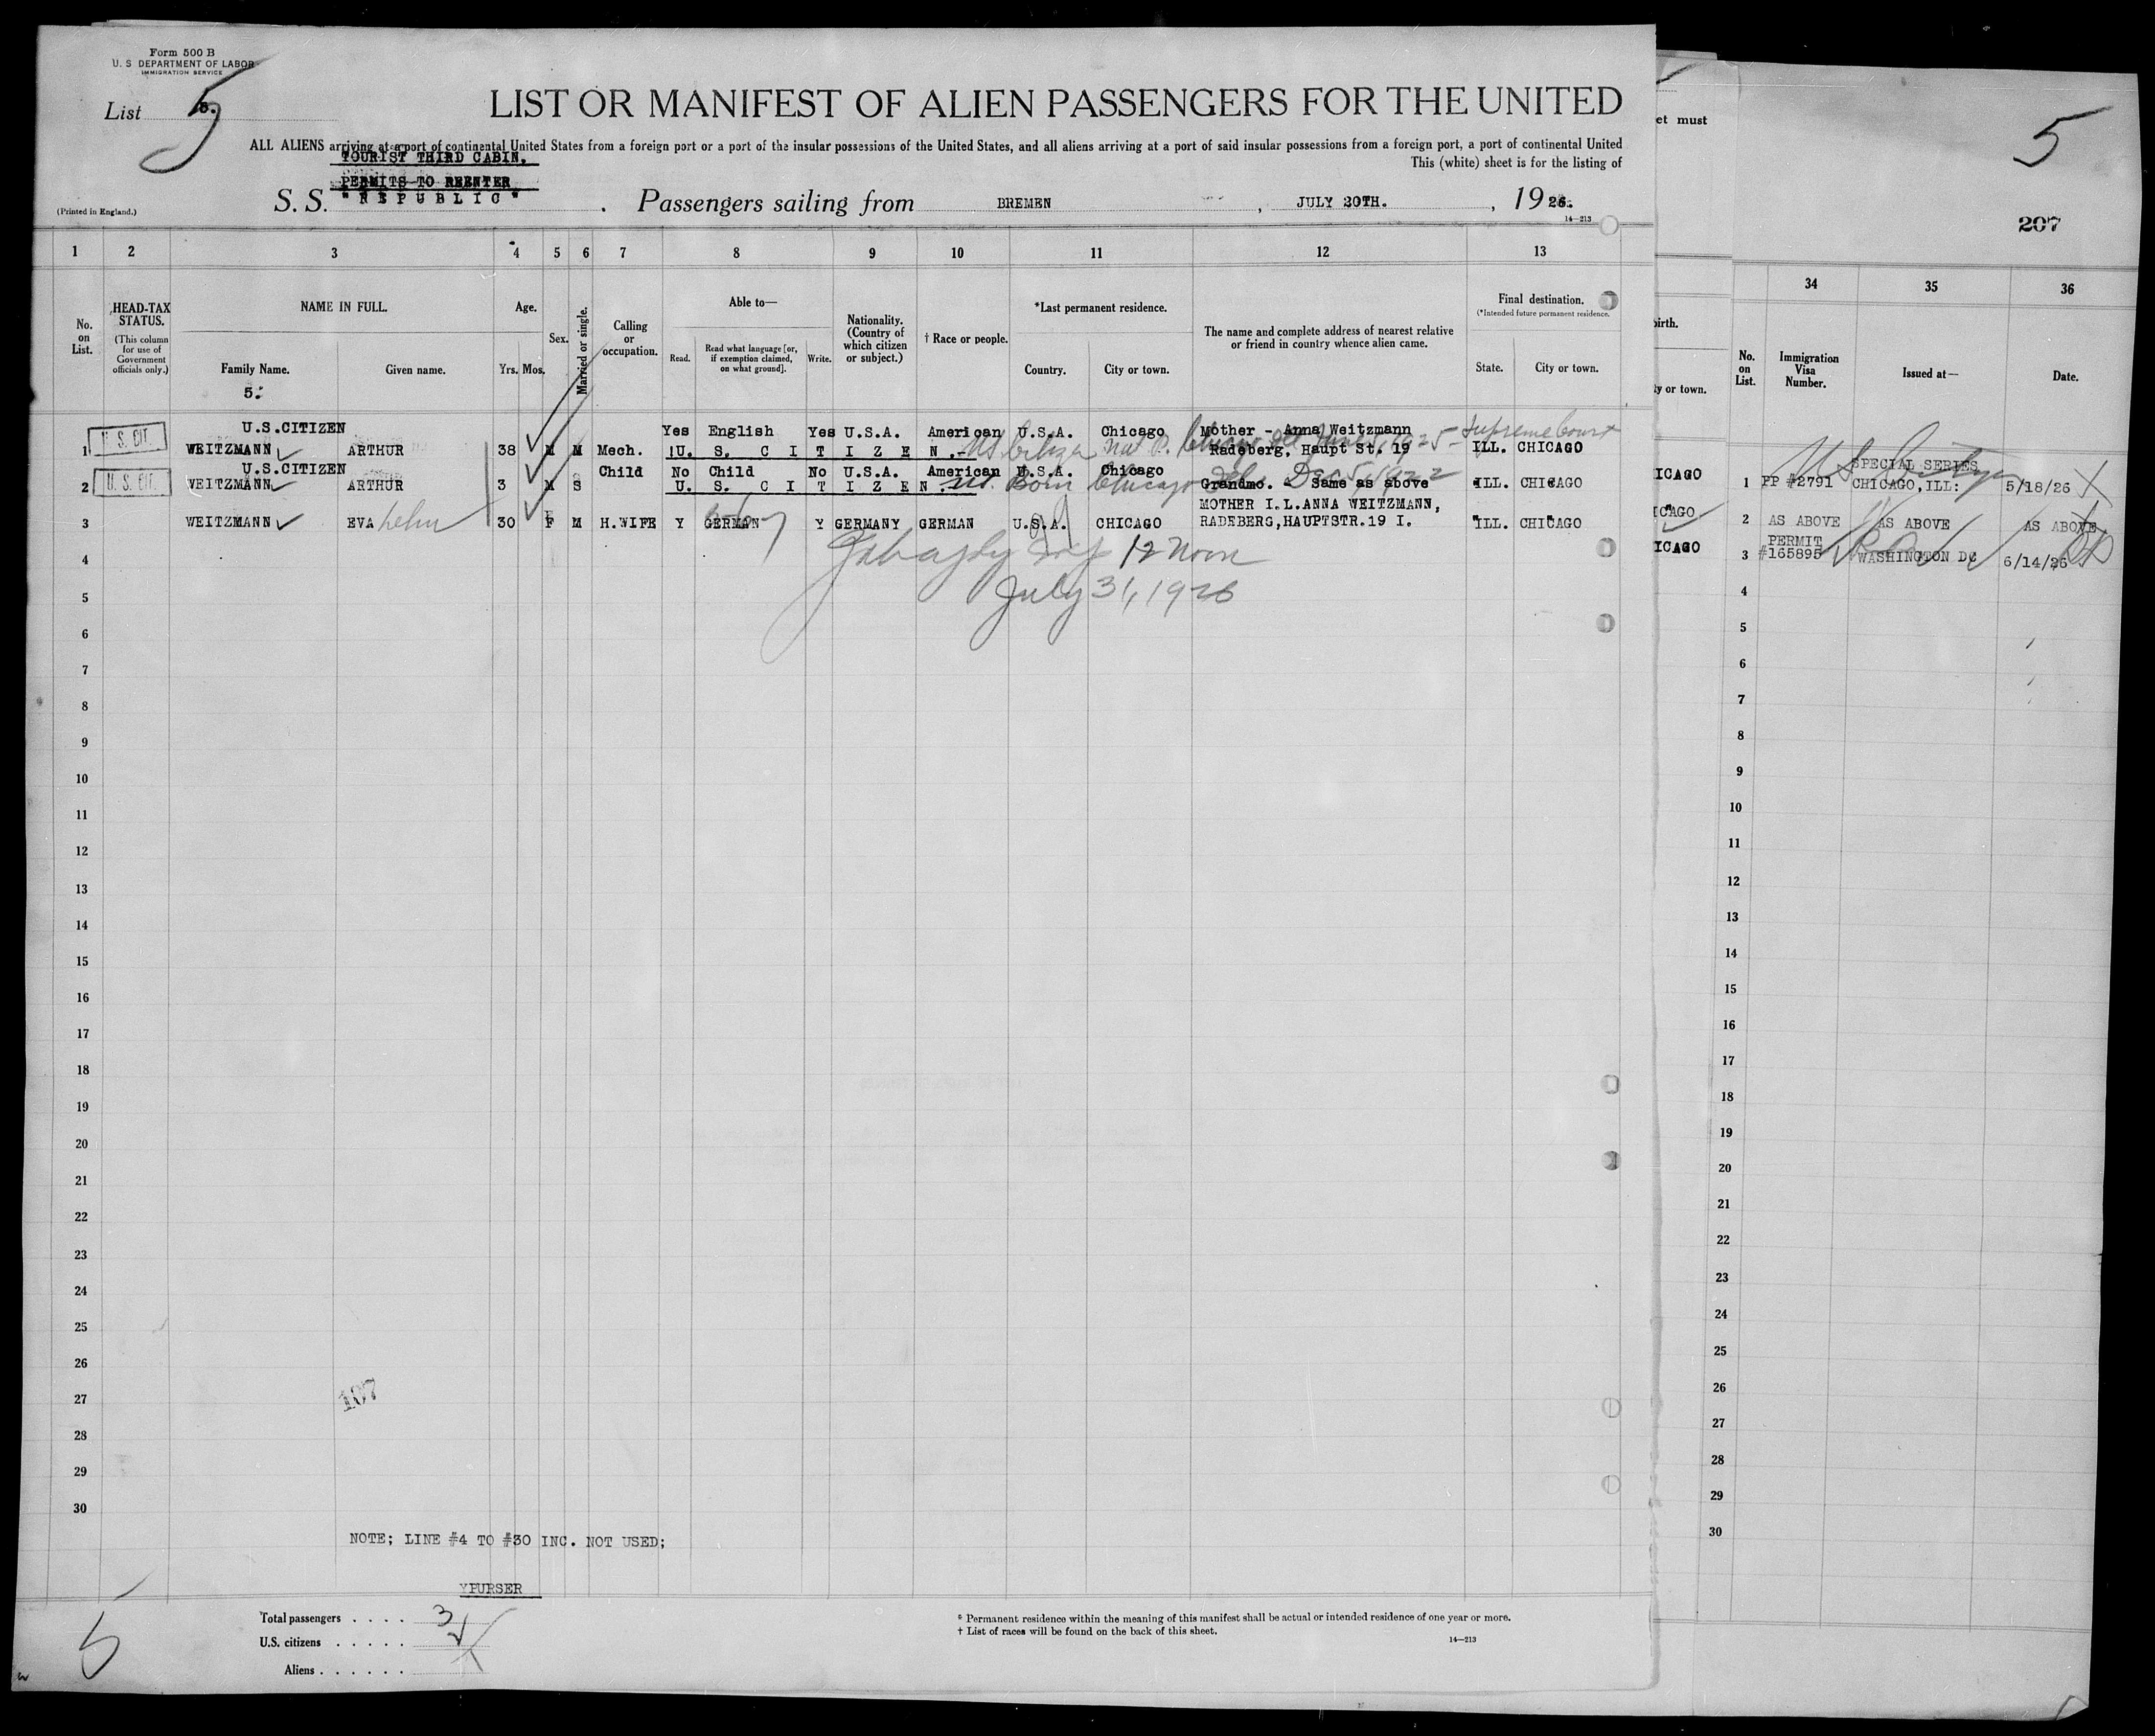 Form 500 B
U. S DEPARTMENT OF LABOR
IMMIGRATION SERVICE
List 5
LIST OR MANIFEST OF ALIEN PASSENGERS FOR THE UNITED
ALL ALIENS arriving at a port of continental United States from a foreign port or a port of the insular possessions of the United States, and all aliens arriving at a port of said insular possessions from a foreign port, a port of continental United
TOURIST THIRD CABIN.
This (white) sheet is for the listing of
PERMITS TO REENTER
S. S. "REPUBLIC" . Passengers sailing from BREMEN , JULY 20TH. , 1926.
(Printed in England.)
14—213
et must
5
207
1 2 3 4 5 6 7 8 9 10 11 12 13
34 35 36
No. on List.
HEAD-TAX STATUS.
(This column for use of Government officials only.)
NAME IN FULL.
Family Name.
Given name.
5:
Age.
Yrs. Mos.
Sex.
Married or single.
Calling or occupation.
Able to—
Read.
Read what language [or, if exemption claimed, on what ground].
Write.
Nationality. (Country of which citizen or subject.)
† Race or people.
*Last permanent residence.
Country.
City or town.
The name and complete address of nearest relative or friend in country whence alien came.
Final destination.
(*Intended future permanent residence.
State.
City or town.
birth.
ty or town.
No. on List.
Immigration Visa Number.
Issued at—
Date.
U.S.CITIZEN Yes English Yes U.S.A. American U.S.A. Chicago Mother - Anna Weitzmann Supreme Court
1 U. S. CIT. WEITZMANN ARTHUR 38 M M Mech. U. S. C I T I Z E N.- US Citizen Nat. Chicago Ill June 5, 1925 Radeberg, Haupt St. 19 ILL. CHICAGO
U.S.CITIZEN Child No Child No U.S.A. American U.S.A. Chicago
2 U. S. CIT. WEITZMANN ARTHUR 3 M S U. S. C I T I Z E N. Born Chicago Ill. Dec 5, 1922 Grandmo. - Same as above ILL. CHICAGO
MOTHER I.L.ANNA WEITZMANN,
3 WEITZMANN EVA 30 F M H.WIFE Y GERMAN Y GERMANY GERMAN U.S.A. CHICAGO RADEBERG,HAUPTSTR.19 I. ILL. CHICAGO
12 Noon
July 31, 1926
ICAGO
ICAGO
ICAGO
US Citizen
SPECIAL SERIES
1 PP #2791 CHICAGO,ILL: 5/18/26
2 AS ABOVE AS ABOVE AS ABOVE
PERMIT
3 #165895 WASHINGTON DC 6/14/26
4
5
6
7
8
9
10
11
12
13
14
15
16
17
18
19
20
21
22
23
24
25
26
27
28
29
30
4
5
6
7
8
9
10
11
12
13
14
15
16
17
18
19
20
21
22
23
24
25
26
27
28
29
30
107
NOTE; LINE #4 TO #30 INC. NOT USED;
YPURSER
Total passengers . . . . 3
U.S. citizens . . . . . 2
Aliens . . . . . . 1
5
* Permanent residence within the meaning of this manifest shall be actual or intended residence of one year or more.
† List of races will be found on the back of this sheet.
14—213